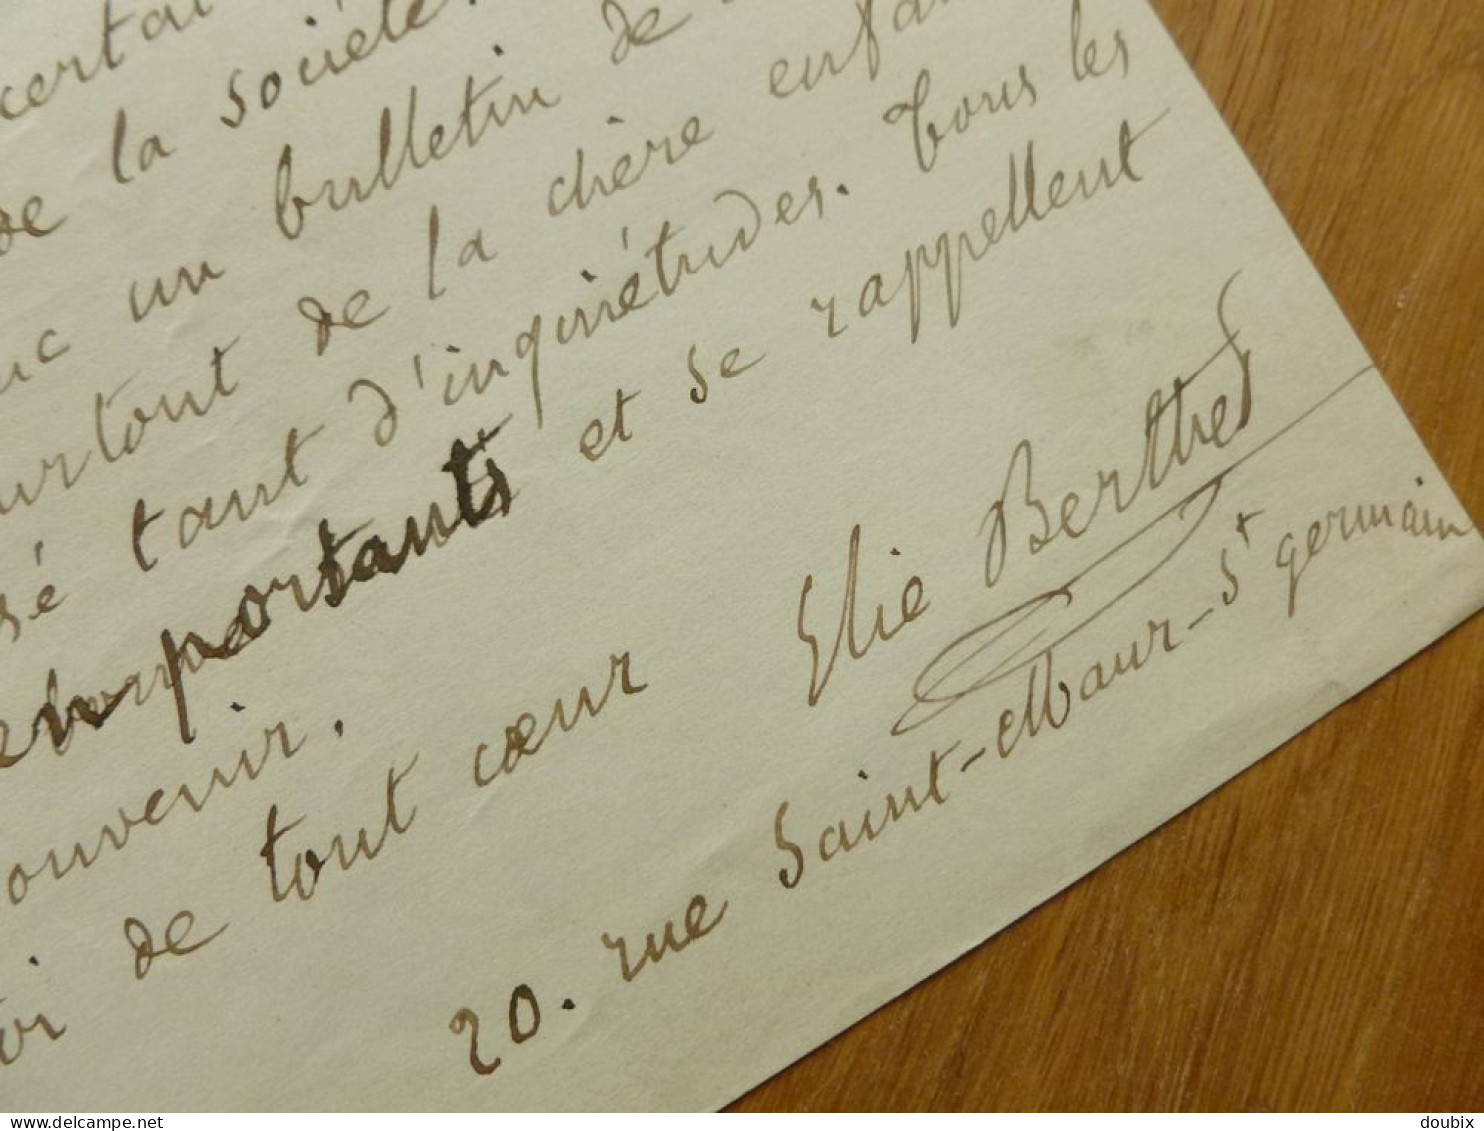 de la société.
un bulletin de
de la chère
tant d'inquiétudes. Tous les
portants et se rappellent
souvenir.
de tout cœur
Elie Berthet
20. rue Saint-Maur-St germain
delcampe.net
doubix